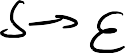 S → ε